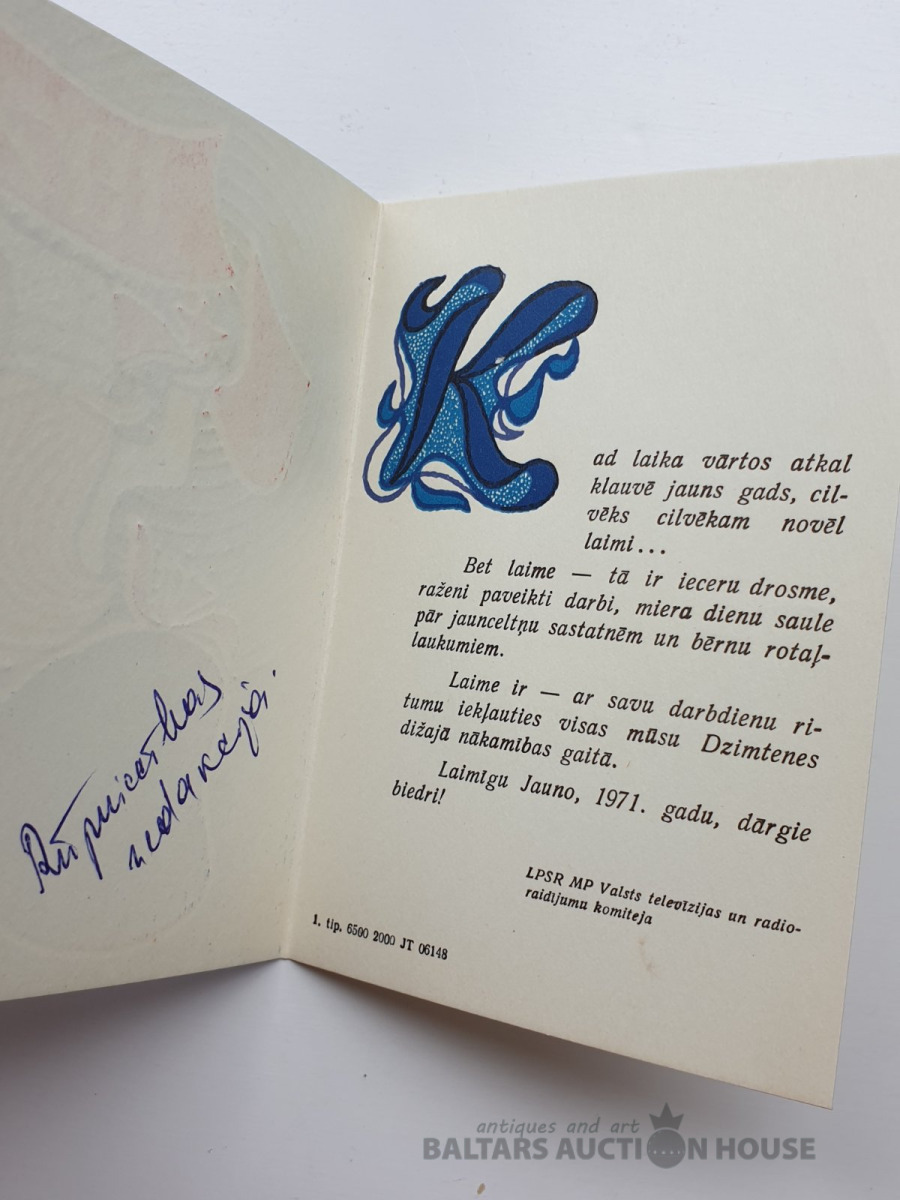 Rūpniecības
redakcijai.
Kad laika vārtos atkal
klauvē jauns gads, cil-
vēks cilvēkam novēl
laimi...
Bet laime — tā ir ieceru drosme,
raženi paveikti darbi, miera dienu saule
pār jaunceltņu sastatnēm un bērnu rotaļ-
laukumiem.
Laime ir — ar savu darbdienu ri-
tumu iekļauties visas mūsu Dzimtenes
dižajā nākamības gaitā.
Laimīgu Jauno, 1971. gadu, dārgie
biedri!
LPSR MP Valsts televīzijas un radio-
raidījumu komiteja
1. tip. 6500 2000 JT 06148
antiques and art
BALTARS AUCTION HOUSE